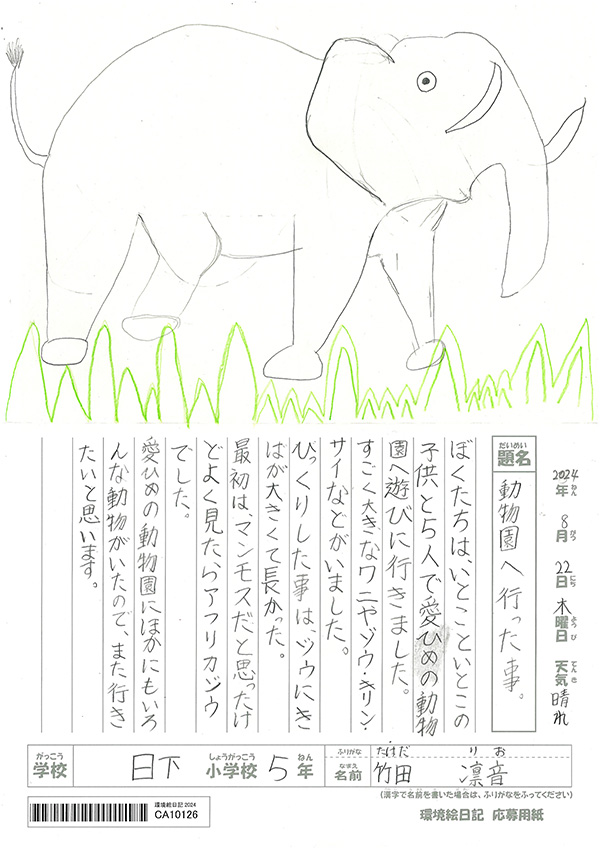 2024年ねん 8月がつ 22日にち 木曜日ようび 天気てんき 晴れ
だいめい
題名 動物園へ行った事。
ぼくたちは、いとこといとこの
子供と5人で愛ひめの動物
園へ遊びに行きました。
すごく大きなワニやゾウ・キリン・
サイなどがいました。
びっくりした事は、ゾウにき
ばが大きくて長かった。
最初は、マンモスだと思ったけ
どよく見たらアフリカゾウ
でした。
愛ひめの動物園にほかにもいろ
んな動物がいたので、また行き
たいと思います。
がっこう しょうがっこう ねん
学校 日下 小学校 5年
ふりがな たけだ りお
なまえ
名前 竹田 凛音
(漢字で名前を書いた場合は、ふりがなをふってください)
環境絵日記 応募用紙
環境絵日記 2024
CA10126